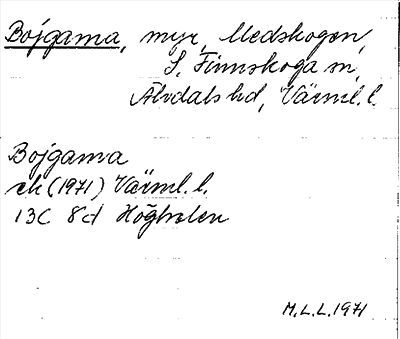 Bojgama, myr, Medskogen,
S. Finnskoga sn,
Älvdals hd, Värml. l.
Bojgama
ek (1971) Värml. l.
13C 8d Höghalen
M.L.L. 1971